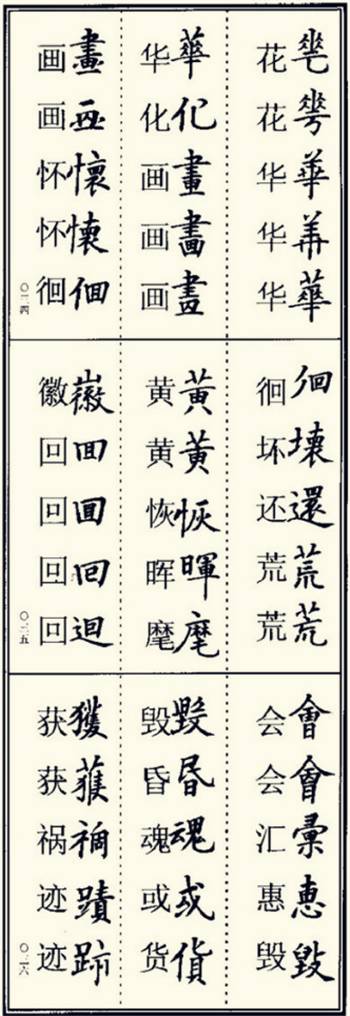 華華
花花华华华
華化畫畫畫
华化画画画
畫懷懐徊
画画怀怀徊
〇二四
徊壞還荒荒
徊坏还荒荒
黃黄恢暉麾
黄黄恢晖麾
徽囬回廻
徽回回回回
〇二五
會會彙恵毀
会会汇惠毁
毀昬魂或貨
毁昏魂或货
獲蹟跡
获获祸迹迹
〇二六